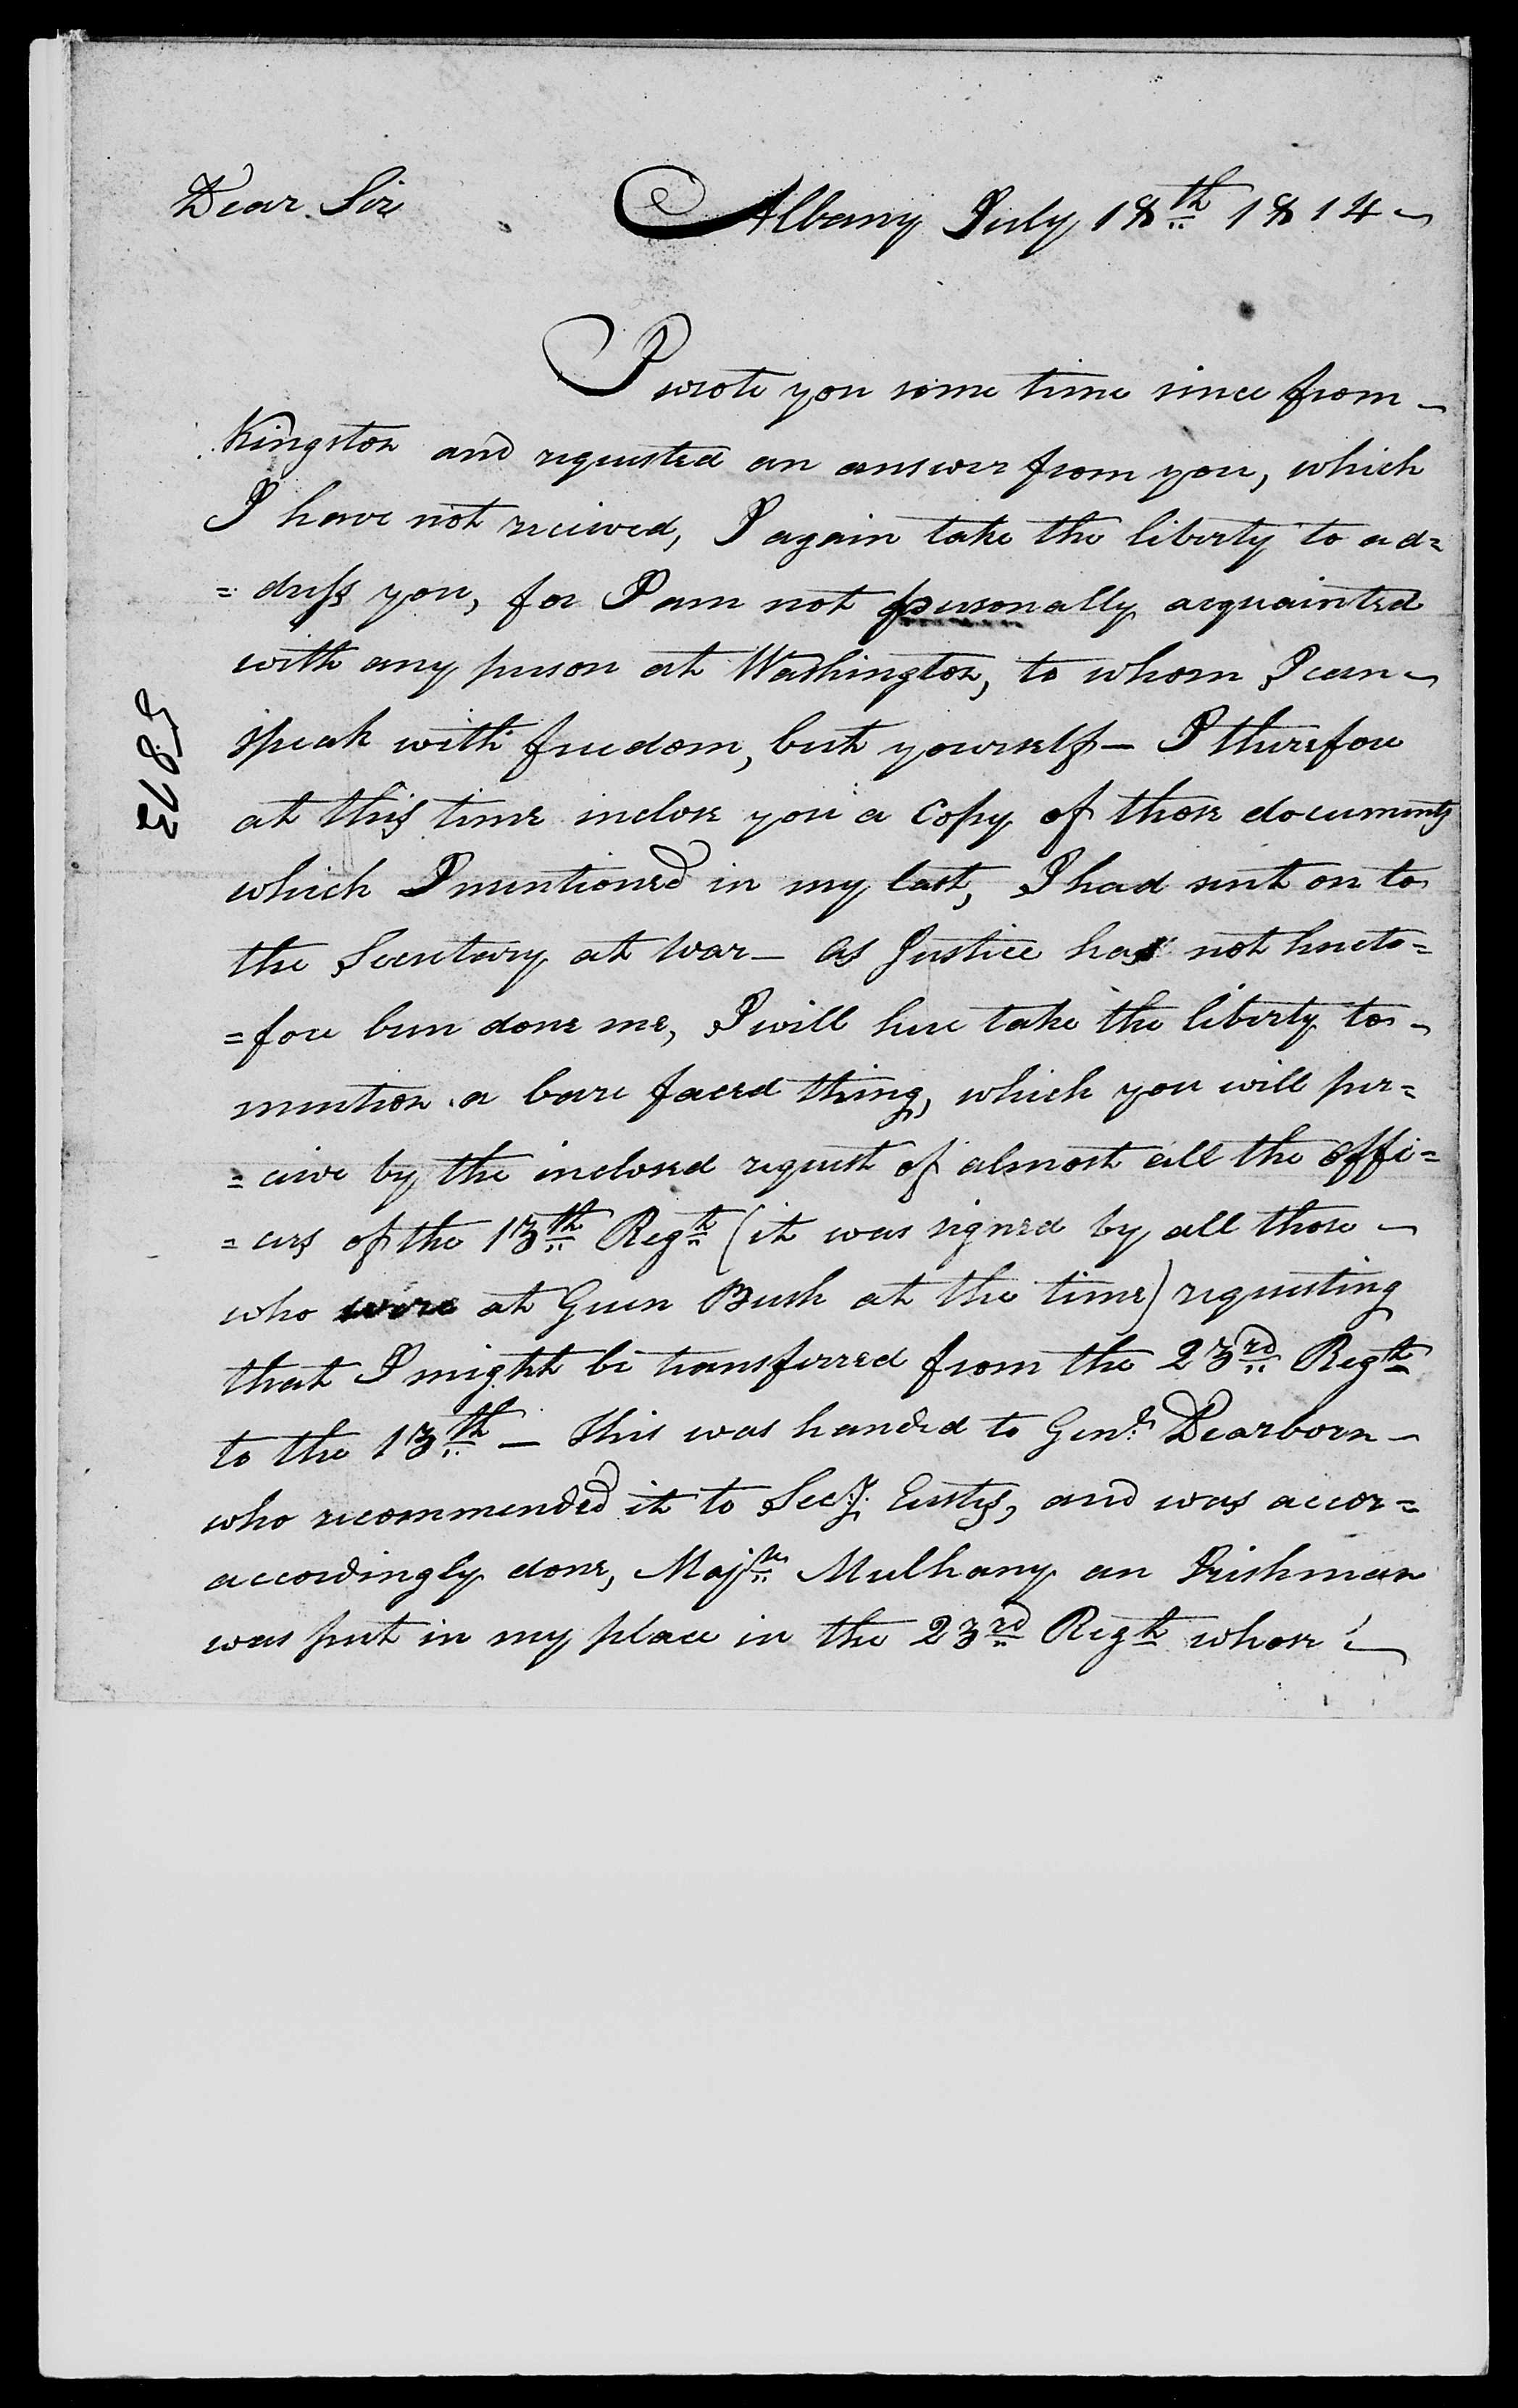 Dear Sir
Albany July 18th 1814
I wrote you some time since from
Kingston and requested an answer from you, which
I have not recieved, I again take the liberty to ad=
=dress you, for I am not personally acquainted
with any person at Washington, to whom I can
speak with freedom, but yourself— I therefore
at this time inclose you a Copy of those documents
which I mentioned in my last, I had sent on to
the Secretary at War— As Justice has not hereto=
=fore been done me, I will here take the liberty to
mention a bare faced thing, which you will per=
=cieve by the inclosed request of almost all the offi=
=cers of the 13th Regt (it was signed by all those
who were at Green Bush at the time) requesting
that I might be transferred from the 23rd Regt
to the 13th — This was handed to Genl Dearborn
who recommended it to Secy. Eustis, and was accor=
accordingly done, Majr Mulhany an Irishman
was put in my place in the 23rd Regt whose